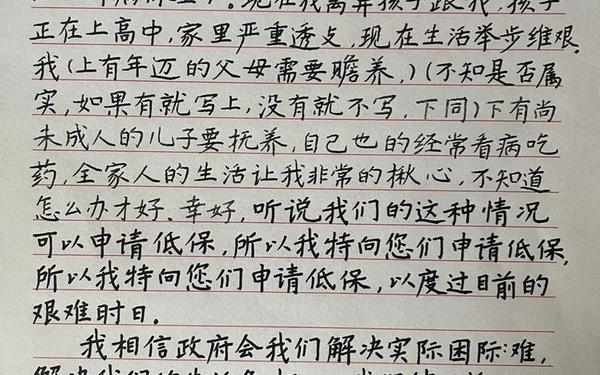 现在我离异孩子跟我,孩子
正在上高中,家里严重透支,现在生活举步维艰.
我(上有年迈的父母需要赡养,)(不知是否属
实,如果有就写上,没有就不写.下同)下有尚
未成人的儿子要抚养,自己也的经常看病吃
药,全家人的生活让我非常的揪心,不知道
怎么办才好.幸好,听说我们的这种情况
可以申请低保,所以我特向您们申请低保,
所以我特向您们申请低保,以度过目前的
艰难时日。
我相信政府会我们解决实际困际难,
解决我们的生活